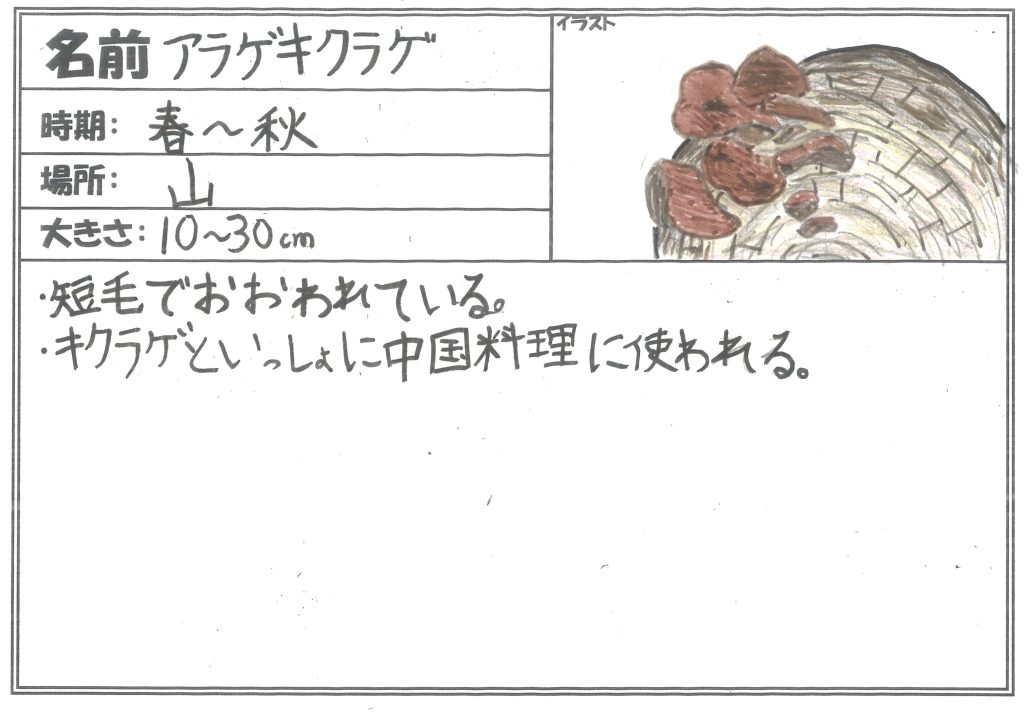 名前 アラゲキクラゲ
イラスト
時期： 春～秋
場所： 山
大きさ： 10～30cm
・短毛でおおわれている。
・キクラゲといっしょに中国料理に使われる。